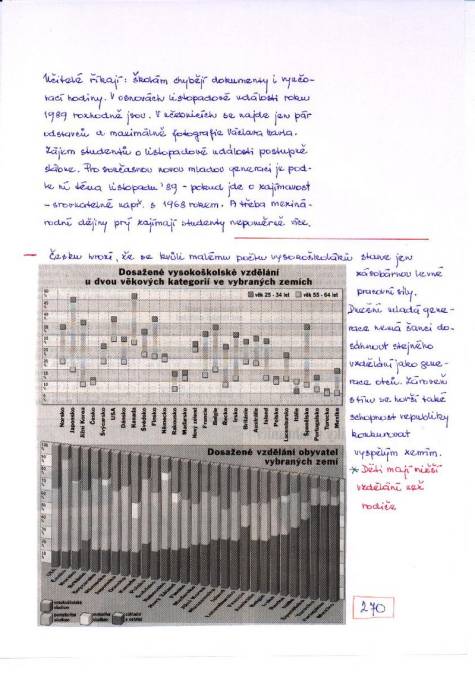 Učitelé říkají: školám chybějí dokumenty i vyučo-
vací hodiny. V osnovách listopadové události roku
1989 rozhodně jsou. V učebnicích se najde jen pár
odstavců a maximálně fotografie Václava Havla.
Zájem studentů o listopadové události postupně
slábne. Pro současnou novou mladou generaci je pod-
le ní téma listopadu '89 - pokud jde o zajímavost
- srovnatelné např. s 1968 rokem. A třeba meziná-
rodní dějiny prý zajímají studenty nepoměrně více.
Česku hrozí, že se kvůli malému počtu vysokoškoláků stane jen
zásobárnou levné
pracovní síly.
Dnešní mladá gene-
race nemá šanci do-
sáhnout stejného
vzdělání jako gene-
race otců. Zároveň
s tím se horší také
schopnost republiky
konkurovat
vyspělým zemím.
* Děti mají nižší
vzdělání než
rodiče
Dosažené vysokoškolské vzdělání
u dvou věkových kategorií ve vybraných zemích
věk 25 - 34 let
věk 55 - 64 let
Norsko
Japonsko
Jižní Korea
Česko
Švýcarsko
USA
Dánsko
Kanada
Švédsko
Finsko
Německo
Rakousko
Maďarsko
Nový Zéland
Francie
Belgie
Řecko
Irsko
Británie
Austrálie
Island
Polsko
Lucembursko
Itálie
Španělsko
Portugalsko
Turecko
Mexiko
Dosažené vzdělání obyvatel
vybraných zemí
vysokoškolské
studium
270